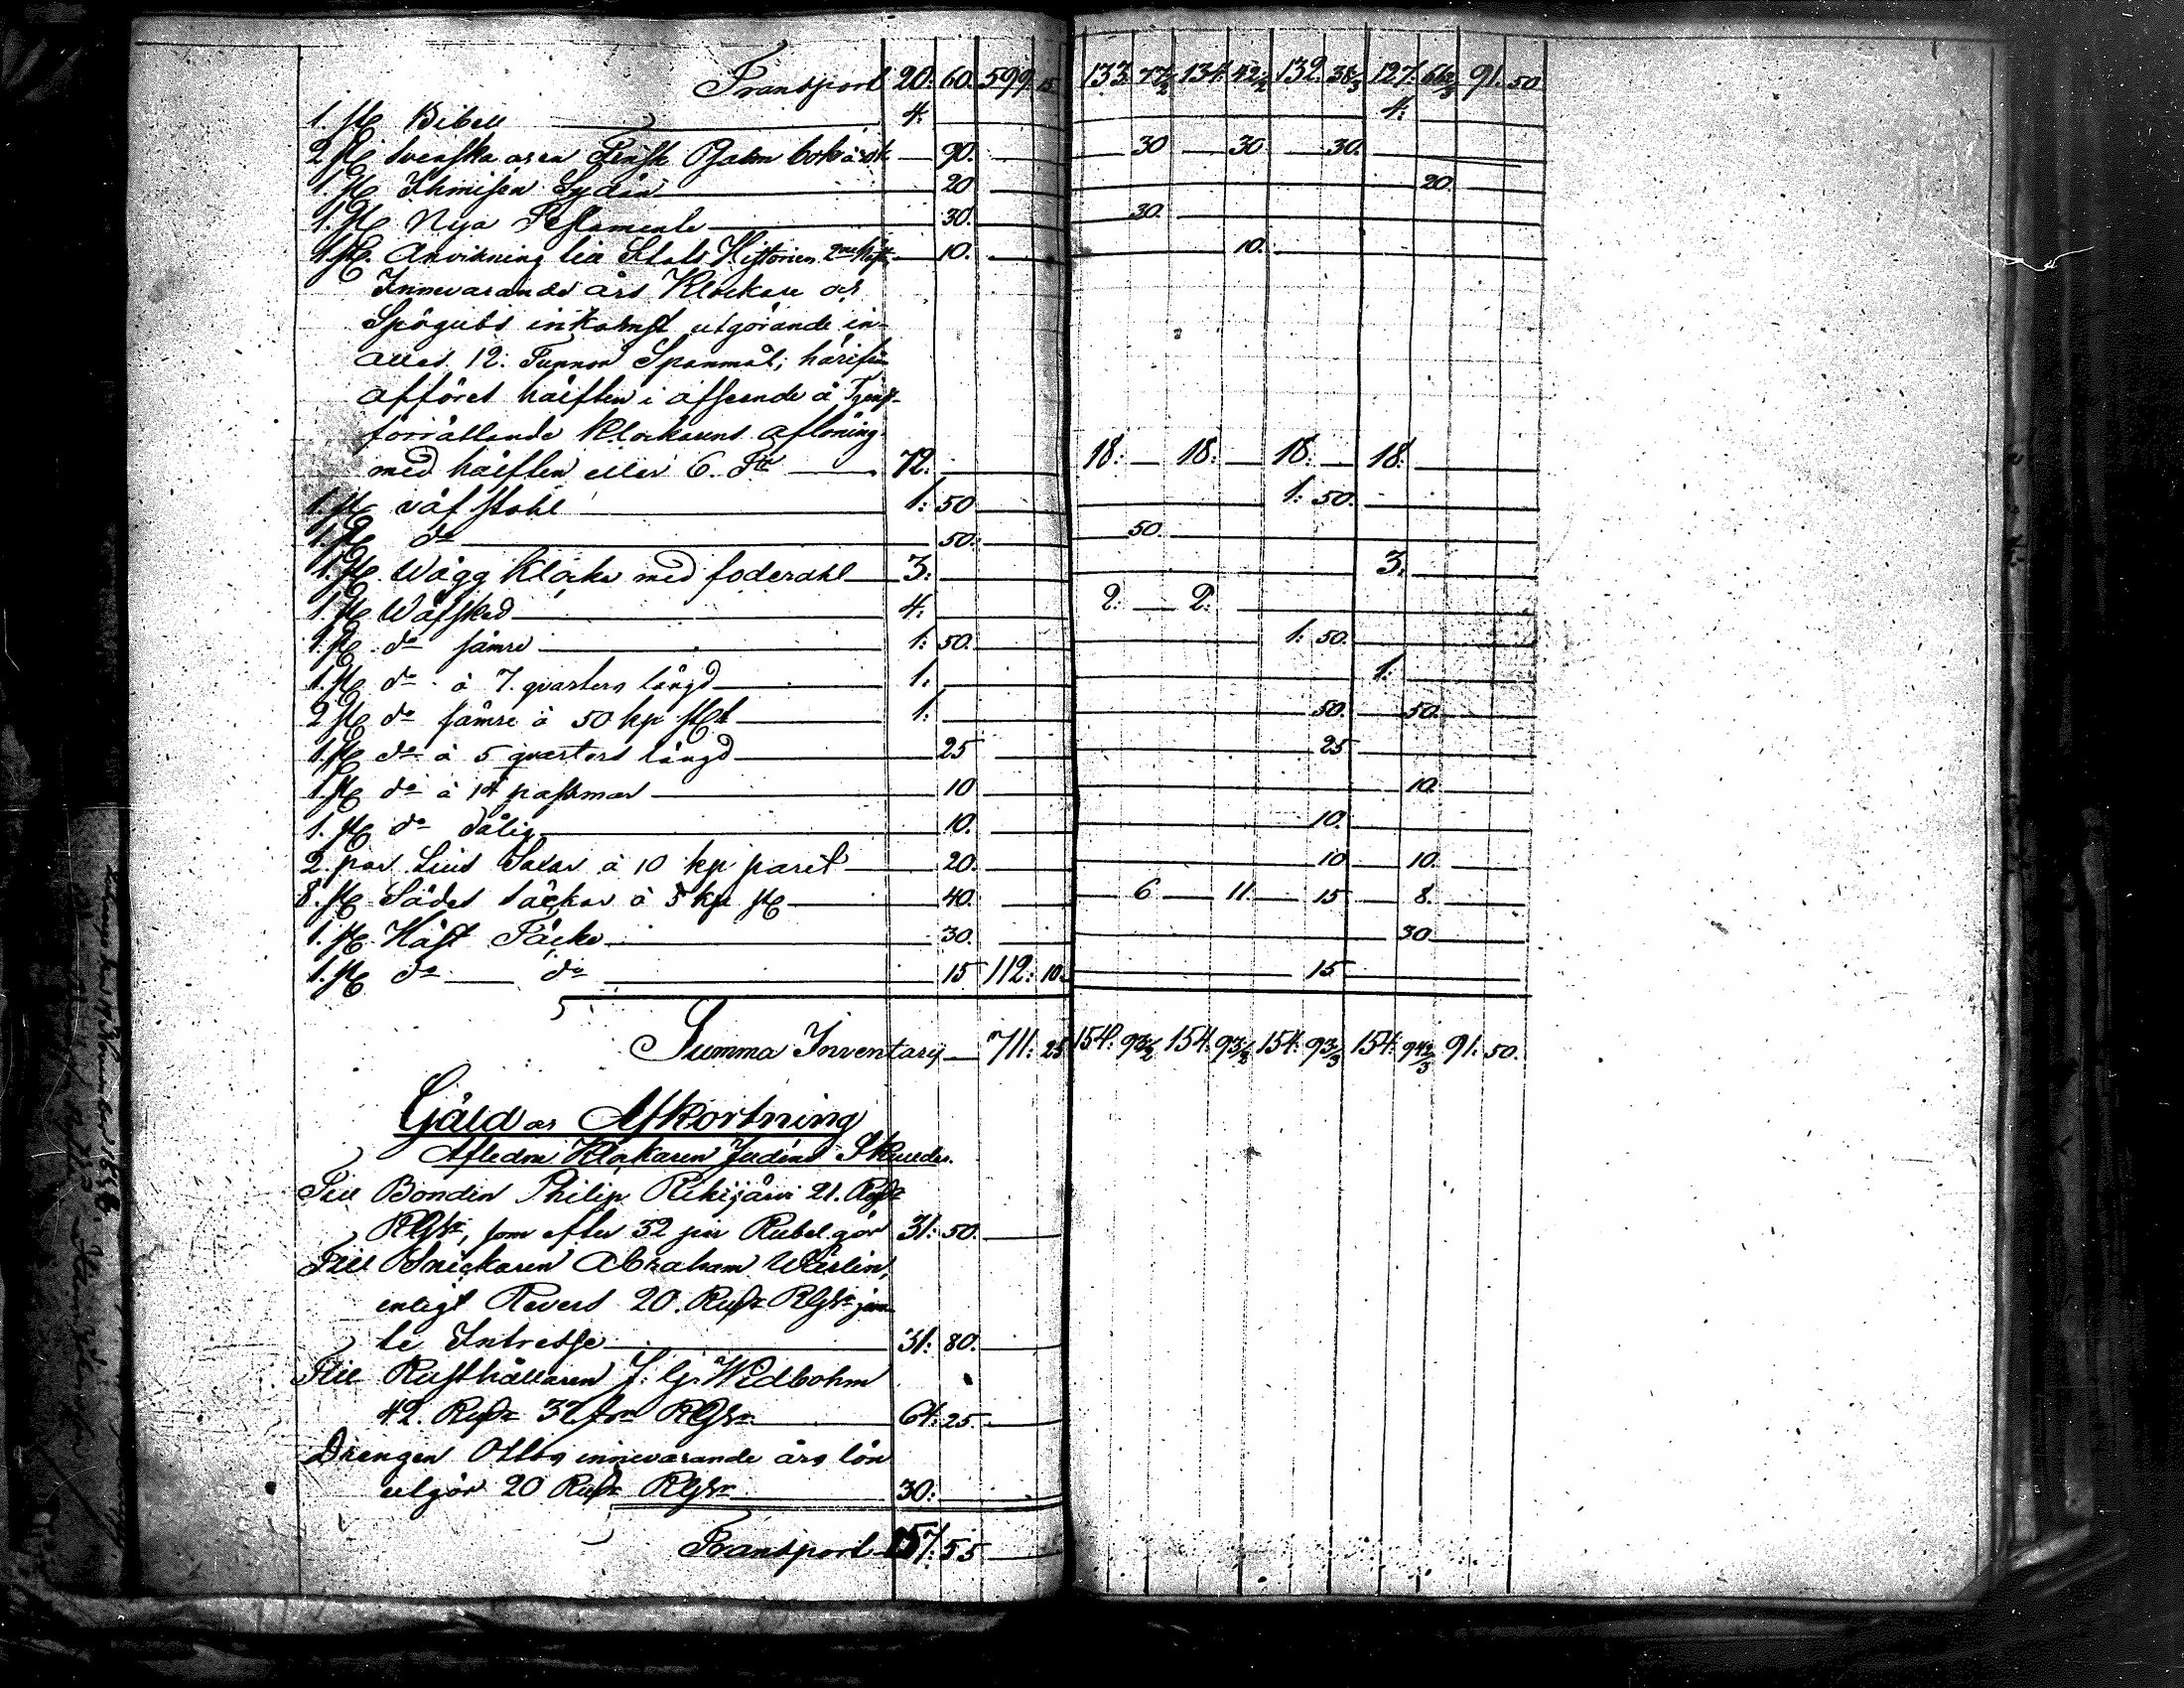 Transport 20. 60. 599. 15. 133. 77½ 134. 42½ 132. 38⅓ 127. 66⅔ 91. 50
1. st Bibell 4. 4.
2 st Svenska och en Finsk Psalm bok à 30 k 90. 30 30 30.
1. st 20 20
1. st Nya Testamente 30. 30.
1 st. Anvisning till Stats Historien 2ne häft 10. 10.
Innevarande års Klockare och
Spögubs inkomst utgörande in-
alles 12: Tunnor Spanmål; härifrån
afföres hälften i afseende å Tjenst-
förrättande Klockarens aflöning
med hälften eller 6. Tr 72. 18. 18. 18. 18.
1. st väf stohl 1: 50 1: 50.
1. st do 50. 50.
1. st. Wägg Klocka med foderahl 3: 3.
1 st Wäfsked 4: 2: 2:
1. st do sämre 1: 50. 1. 50.
1. st do à 7. qvarters längd 1. 1.
2 st do sämre à 50 kp st 1. 50. 50.
1. st do à 5 qvarters längd 25 25
1. st do à 14 pasmor 10 10.
1. st do dålig 10. 10.
2. par Saxar à 10 kp paret 20. 10 10.
8. st Sädes säckar à 5 kp st 40. 6 11. 15 8.
1. st Häst Täcke 30. 30
1. st do do 15 112: 10. 15
Summa Inventary 711: 25 154. 93½ 154. 93½ 154. 93⅓ 154. 94⅔ 91. 50.
Gäld och Afkortning
Afledne Klockaren Judéns Skulder.
Till Bonden Philip Rekijärvi 21. Rub
RGSr, som efter 32 pr Rubel gör 31: 50.
Till Snickaren Abraham Wärlin,
enligt Revers 20. Rub RGSr jem
te Intresse 31: 80.
Till Rusthållaren J. G. Widbohm
42. Rub 37 RGSr 64: 25.
Drengen Ottos innevarande års lön
utgör 20 Rub RGSr 30:
Transport 157. 55